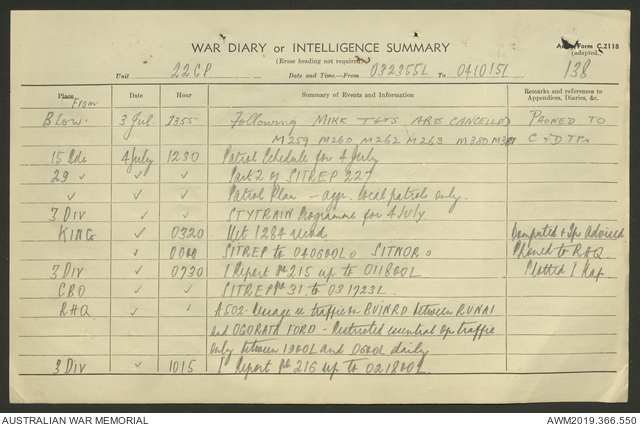 WAR DIARY or INTELLIGENCE SUMMARY
(Erase heading not required)
Form C.2118
(adapted)
Unit 22 CP Date and Time.—From 032355L To 041015L 138
Place Date Hour Summary of Events and Information Remarks and references to Appendices, Diaries, &c.
From
BLOW. 3 Jul. 2355 Following MIKE TGTS ARE CANCELLED PHONED TO
M259 M260 M262 M263 M380 M381 C & D TPs
15 Bde 4 July 1230 Patrol Schedule for 4 July
29 " ✓ ✓ Part 2 of SITREP 227
✓ ✓ Patrol Plan - aggr. local patrols only.
3 DIV ✓ ✓ CTYTRAIN Programme for 4 July
KING ✓ 0320 Met 1284 recd. Computed & Tps Advised
✓ SITREP to 040600L. SITNOR. Phoned to RHQ
3 DIV ✓ 0730 I Report No 215 up to 011800L Plotted I Map
CBO ✓ ✓ SITREP No 31 to 031723L
RHQ ✓ ✓ A502. Message re traffic on BUINRD between RUNAI
and OGORATA FORD - Restricted essential Op traffic
only between 1900L and 0600L daily
3 DIV ✓ 1015 I Report No 216 up to 021800L.
AUSTRALIAN WAR MEMORIAL AWM2019.366.550